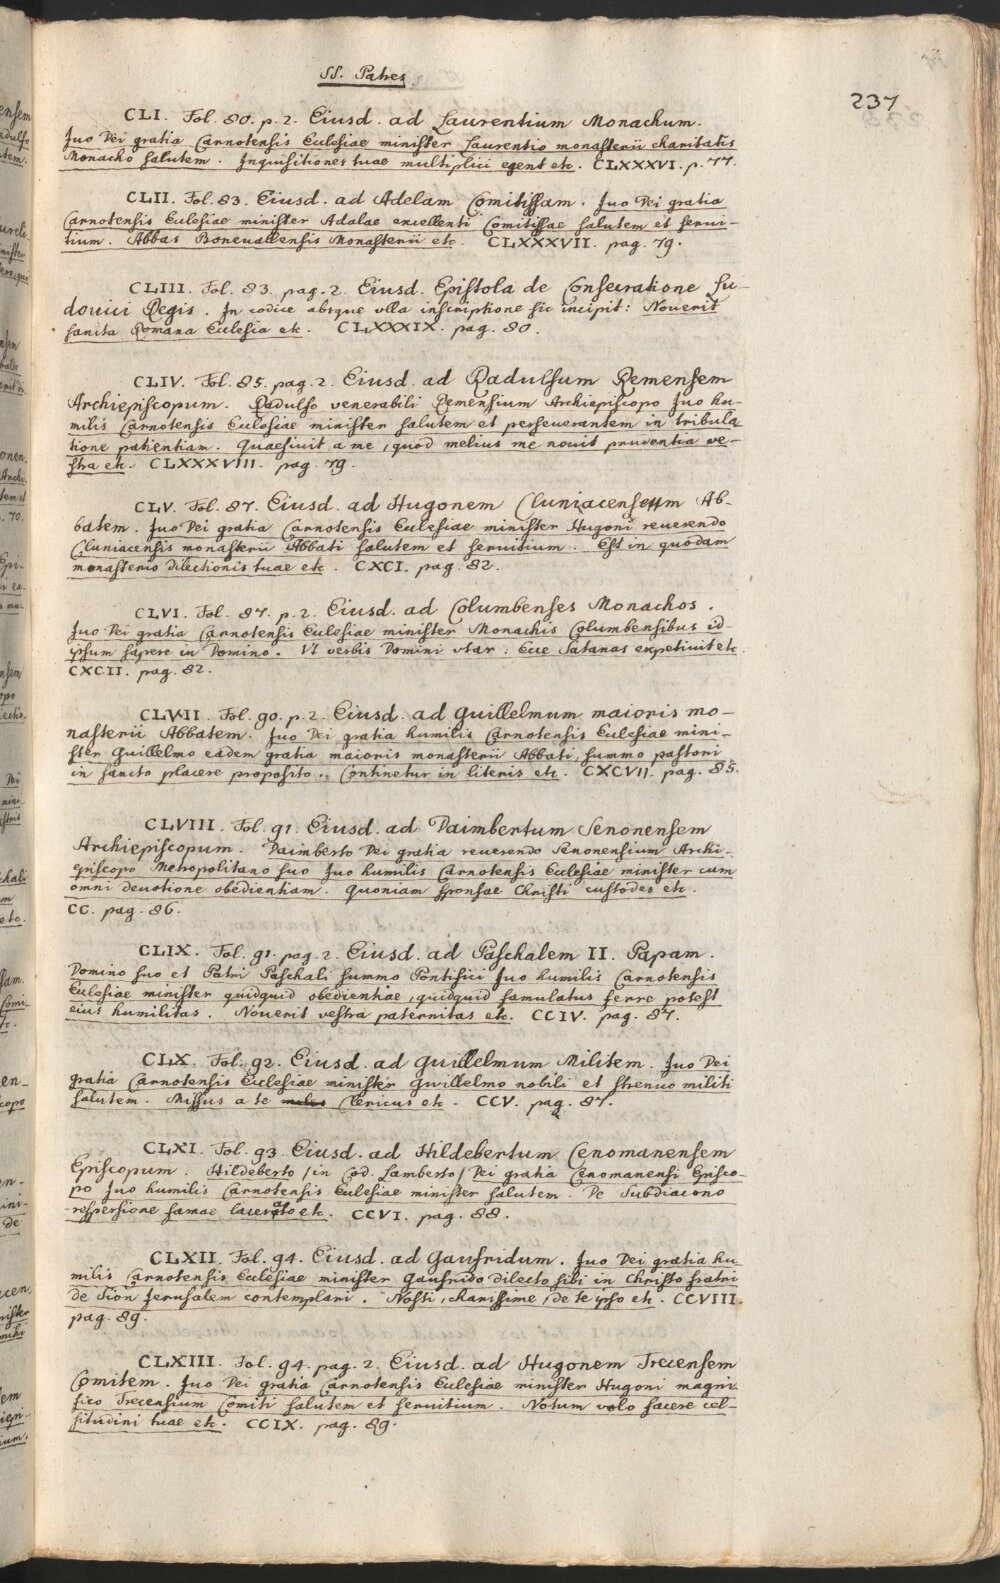 SS. Patres
237
CLI. Fol. 80. p. 2. Eiusd. ad Laurentium Monachum.
Juo Dei gratia Carnotensis Eulesiae minister Laurentio monasterii charitatis
Monacho salutem. Inquisitiones tuae multiplici egent etc. CLXXXVI. p. 77.
CLII. Fol. 83. Eiusd. ad Adelam Comitissam. Juo Dei gratia
Carnotensis Eulesiae minister Adalae excellenti Comitissae salutem et serui-
tium. Abbas Boneuallensis Monasterii etc. CLXXXVII. pag. 79.
CLIII. Fol. 83. pag. 2. Eiusd. Epistola de Consecratione Lu-
douici Regis. In codice absque ulla inscriptione sic incipit: Nouerit
sancta Romana Eulesia etc. CLXXXIX. pag. 80.
CLIV. Fol. 85. pag. 2. Eiusd. ad Radulsum Remensem
Archiepiscopum. Radulfo venerabili Remensium Archiepiscopo Juo hu-
milis Carnotensis Eulesiae minister salutem et perseuerantem in tribula
tione patientiam. Quaesiuit a me, quod melius me nouit prudentia ve-
stra etc. CLXXXVIII. pag. 79.
CLV. Fol. 87. Eiusd. ad Hugonem Cluniacensem Ab-
batem. Juo Dei gratia Carnotensis Eulesiae minister Hugoni reuerendo
Cluniacensis monasterii Abbati salutem et seruitium. Est in quodam
monasterio dilectionis tuae etc. CXCI. pag. 82.
CLVI. Fol. 87. p. 2. Eiusd. ad Columbenses Monachos.
Juo Dei gratia Carnotensis Eulesiae minister Monachis Columbensibus id-
ipsum sapere in Domino. Vt verbis Domini vtar: Ecce Satanas expetiuit etc.
CXCII. pag. 82.
CLVII. Fol. 90. p. 2. Eiusd. ad Guillelmum maioris mo-
nasterii Abbatem. Juo Dei gratia humilis Carnotensis Eulesiae mini-
ster Guillelmo eadem gratia maioris monasterii Abbati, summo pastori
in sancto placere proposito. Continetur in literis etc. CXCVII. pag. 85.
CLVIII. Fol. 91. Eiusd. ad Daimbertum Senonensem
Archiepiscopum. Daimberto Dei gratia reuerendo Senonensium Archi-
episcopo Metropolitano suo Juo humilis Carnotensis Eulesiae minister cum
omni deuotione obedientiam. Quoniam sponsae Christi custodes etc.
CC. pag. 86.
CLIX. Fol. 91. pag. 2. Eiusd. ad Paschalem II. Papam.
Domino suo et Patri Paschali summo Pontifici Juo humilis Carnotensis
Eulesiae minister quidquid obedientiae, quidquid famulatus ferre potest
eius humilitas. Nouerit vestra paternitas etc. CCIV. pag. 87.
CLX. Fol. 92. Eiusd. ad Guillelmum Militem. Juo Dei
gratia Carnotensis Eulesiae minister Guillelmo nobili et strenuo militi
salutem. Missus a te Clericus etc. CCV. pag. 87.
CLXI. Fol. 93. Eiusd. ad Hildebertum Cenomanensem
Episcopum. Hildeberto /in Cod. Lamberto/ Dei gratia Cenomanensi Episco-
po Juo humilis Carnotensis Eulesiae minister salutem. De Subdiacono
respersione famae lacerato etc. CCVI. pag. 88.
CLXII. Fol. 94. Eiusd. ad Gaufridum. Juo Dei gratia hu
milis Carnotensis Eulesiae minister Gaufrido dilecto sibi in Christo fratri
de Sion Jerusalem contemplari. Nosti, charissime, de te ipso etc. CCVIII.
pag. 89.
CLXIII. Fol. 94. pag. 2. Eiusd. ad Hugonem Trecensem
Comitem. Juo Dei gratia Carnotensis Eulesiae minister Hugoni magni
fico Trecensium Comiti salutem et seruitium. Notum volo facere cel-
situdini tuae etc. CCIX. pag. 89.